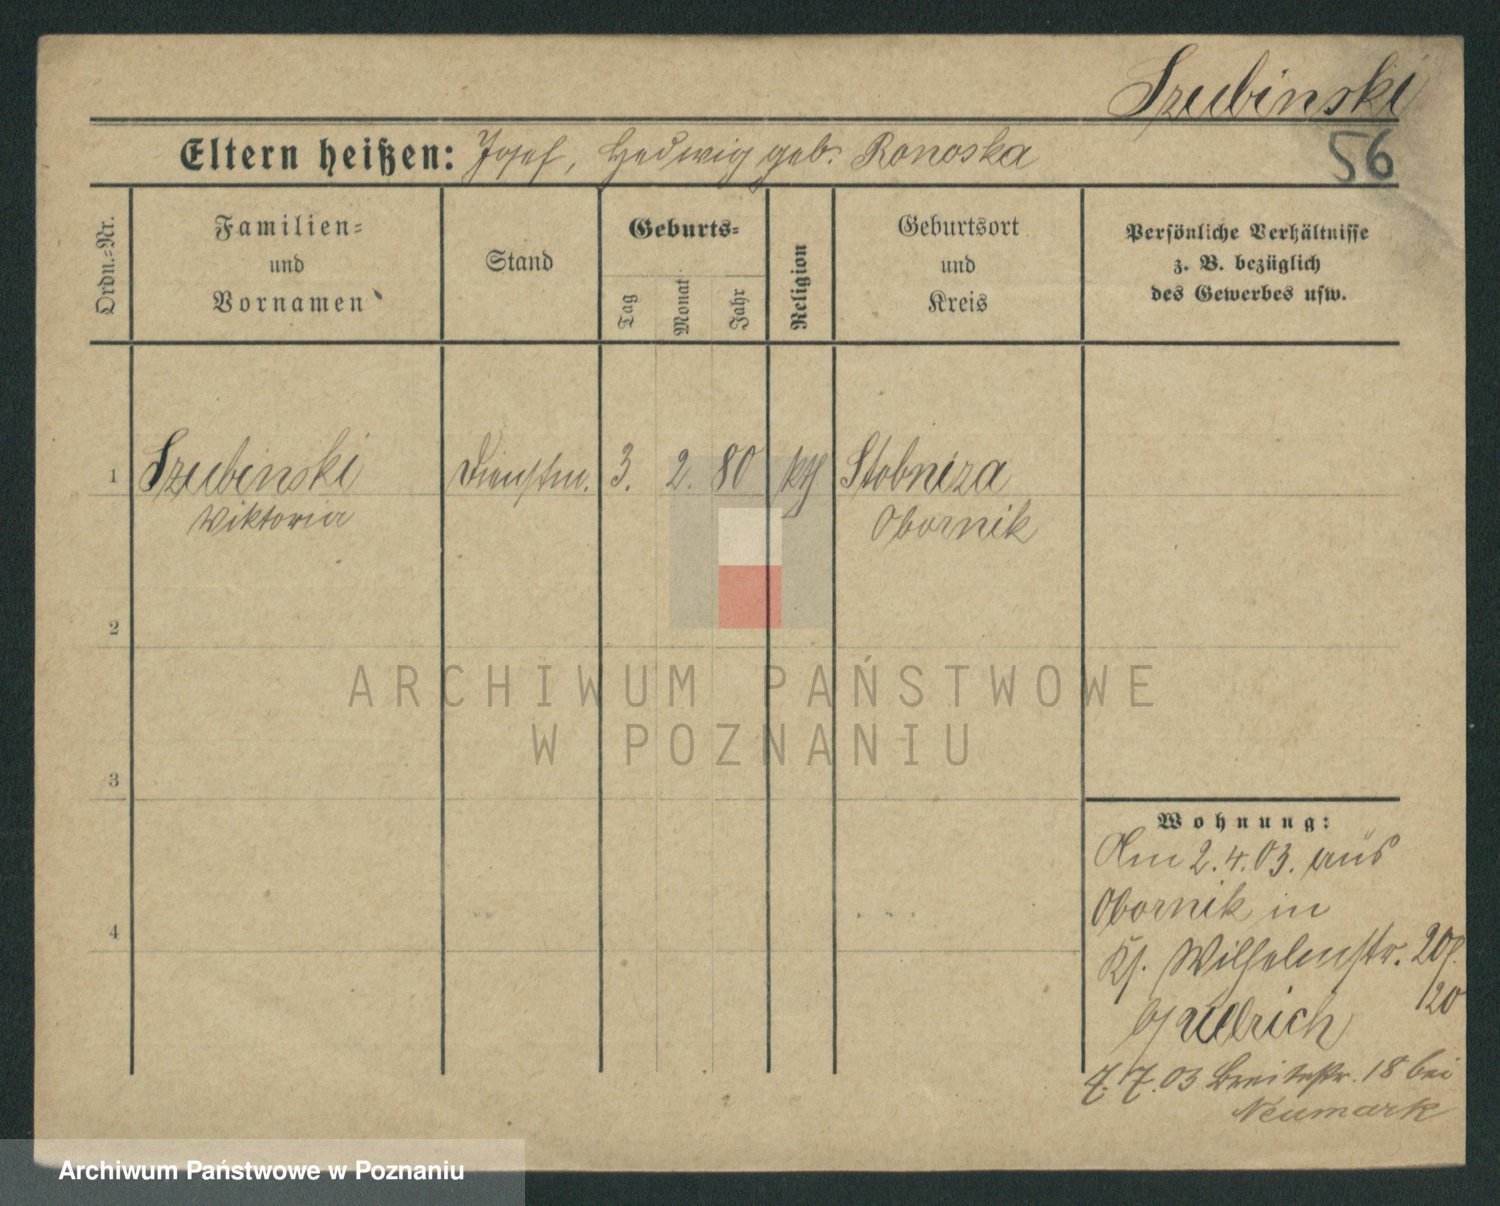 Szubinski
56
Eltern heißen: Josef, Hedwig geb. Ronoska
Ordn.-Nr.
Familien-
und
Vornamen
Stand
Geburts-
Tag
Monat
Jahr
Religion
Geburtsort
und
Kreis
Persönliche Verhältnisse
z. B. bezüglich
des Gewerbes usw.
1 Szubinski Dienstm. 3. 2. 80 kth Stobniza
Wiktoria Obornik
2
ARCHIWUM PAŃSTWOWE
W POZNANIU
3
Wohnung:
Am 2.4.03. aus
Obornik in
4
Wilhelmstr. 20
/20
b/ Ullrich
7.7.03 Breitestr. 18 bei
Neumark
Archiwum Państwowe w Poznaniu